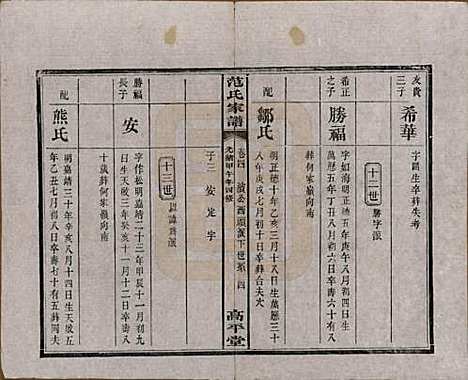 友貴
三子
希華
字闕生卒葬失考
十二世
勝字派
希正
之子
勝福
字如海明正德庚午八月初四日生
萬曆五年丁丑八月初六日卒壽六十有八
葬何家嶺向南
配
鄒氏
明正德十年乙亥三月十八日生萬曆三十
八年庚戌七月初十日卒葬合夫大
子三安定字
范氏家譜
卷四
下世系
四
光緒甲午年四修
高平堂
十三世
以諱為派
勝福
長子
安
字作松明嘉靖二十三年甲辰十一月初九
日生天啟三年癸亥十一月十二日卒壽八
十歲葬何家嶺向南
配
熊氏
明嘉靖三十年辛亥八月十四日生天啟五
年乙丑七月初八日卒壽七十有五葬同夫